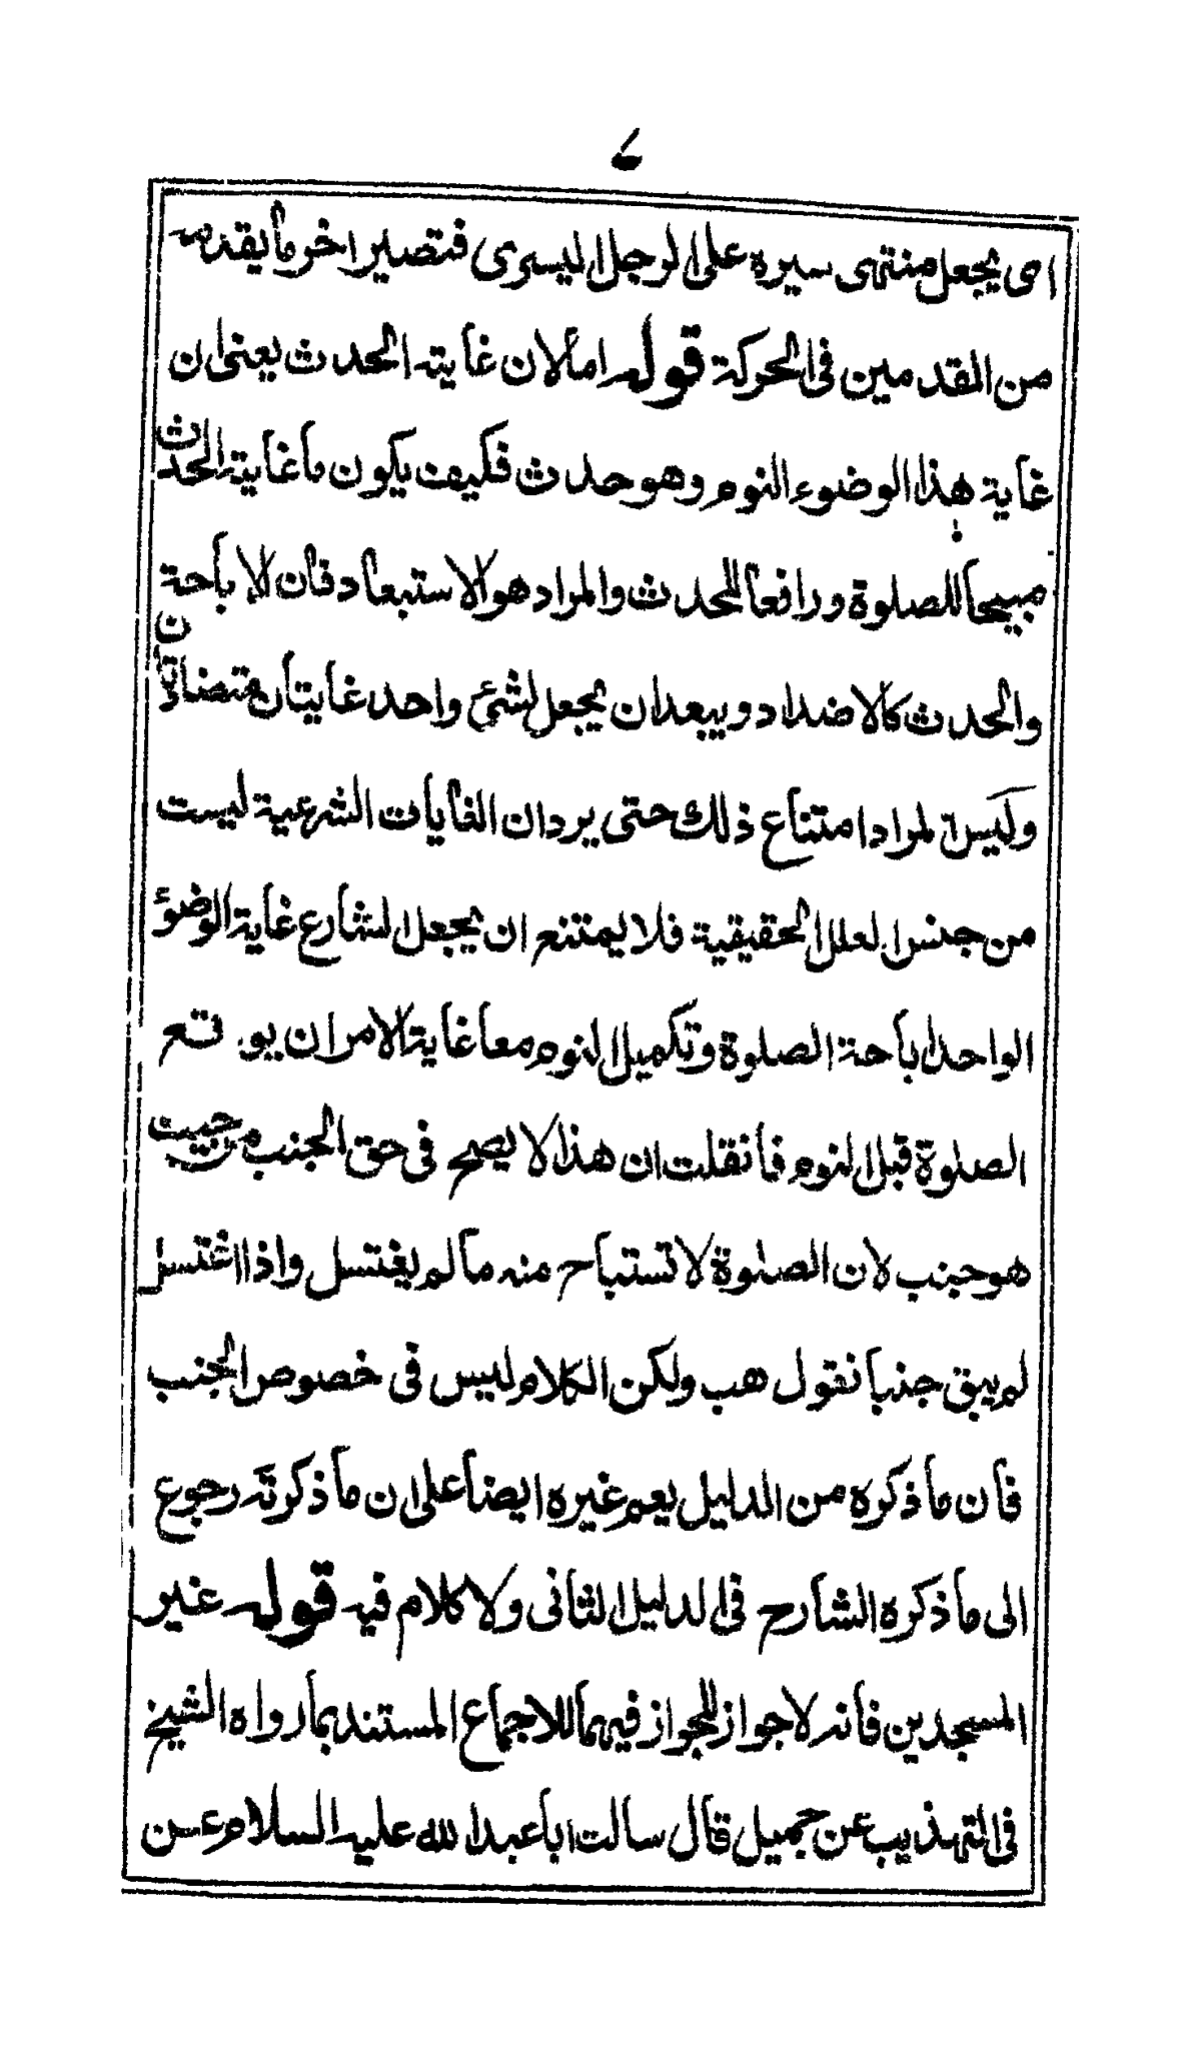 ے
اى يجعل منتهى سيره على الرجل اليسرى فتصير اخر ما يقدمه
من المقدمين فى الحركة قوله اما لان غايته الحدث يعنى ان
غاية هذا الوضوء النوم وهو حدث فكيف يكون ما غايته الحدث
مبيحا للصلوة ورافعا للحدث والمراد هو الاستبعاد فان الاباحة
والحدث كالاضداد ويبعد ان يجعل لشئ واحد غايتان متضادتان
وليس المراد امتناع ذلك حتى يرد ان الغايات الشرعية ليست
من جنس العلل الحقيقية فلا يمتنع ان يجعل الشارع غاية الوضوء
الواحد اباحة الصلوة وتكميل النوم معا غاية الامر ان يوقع
الصلوة قبل النوم فان قلت ان هذا لا يصح فى حق الجنب من حيث
هو جنب لان الصلوة لا تستباح منه ما لم يغتسل واذا اغتسل
لم يبق جنبا نقول هب ولكن الكلام ليس فى خصوص الجنب
فان ما ذكره من الدليل يعم غيره ايضا على ان ما ذكرته رجوع
الى ما ذكره الشارح فى الدليل الثانى ولا كلام فيه قوله غير
المسجدين فانه لا جواز للجواز فيهما للاجماع المستند بما رواه الشيخ
فى التهذيب عن جميل قال سالت ابا عبد الله عليه السلام عن